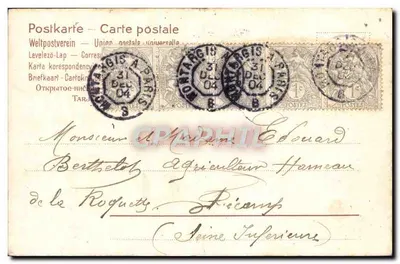 Postkarte - Carte postale
Weltpostverein - Union postale universelle
Levelező-Lap - Corres
Karta korespondency
Briefkaart - Cartoli
Открытое пис
MONTARGIS A PARIS
31
DEC
04
S
MONTARGIS A PARIS
31
DEC
04
B
MONTARGIS A PARIS
31
DEC
04
B
Monsieur et Madame Edouard
Berthelot Agriculteur Hameau
de la Roquette Fécamp
(Seine Inférieure)